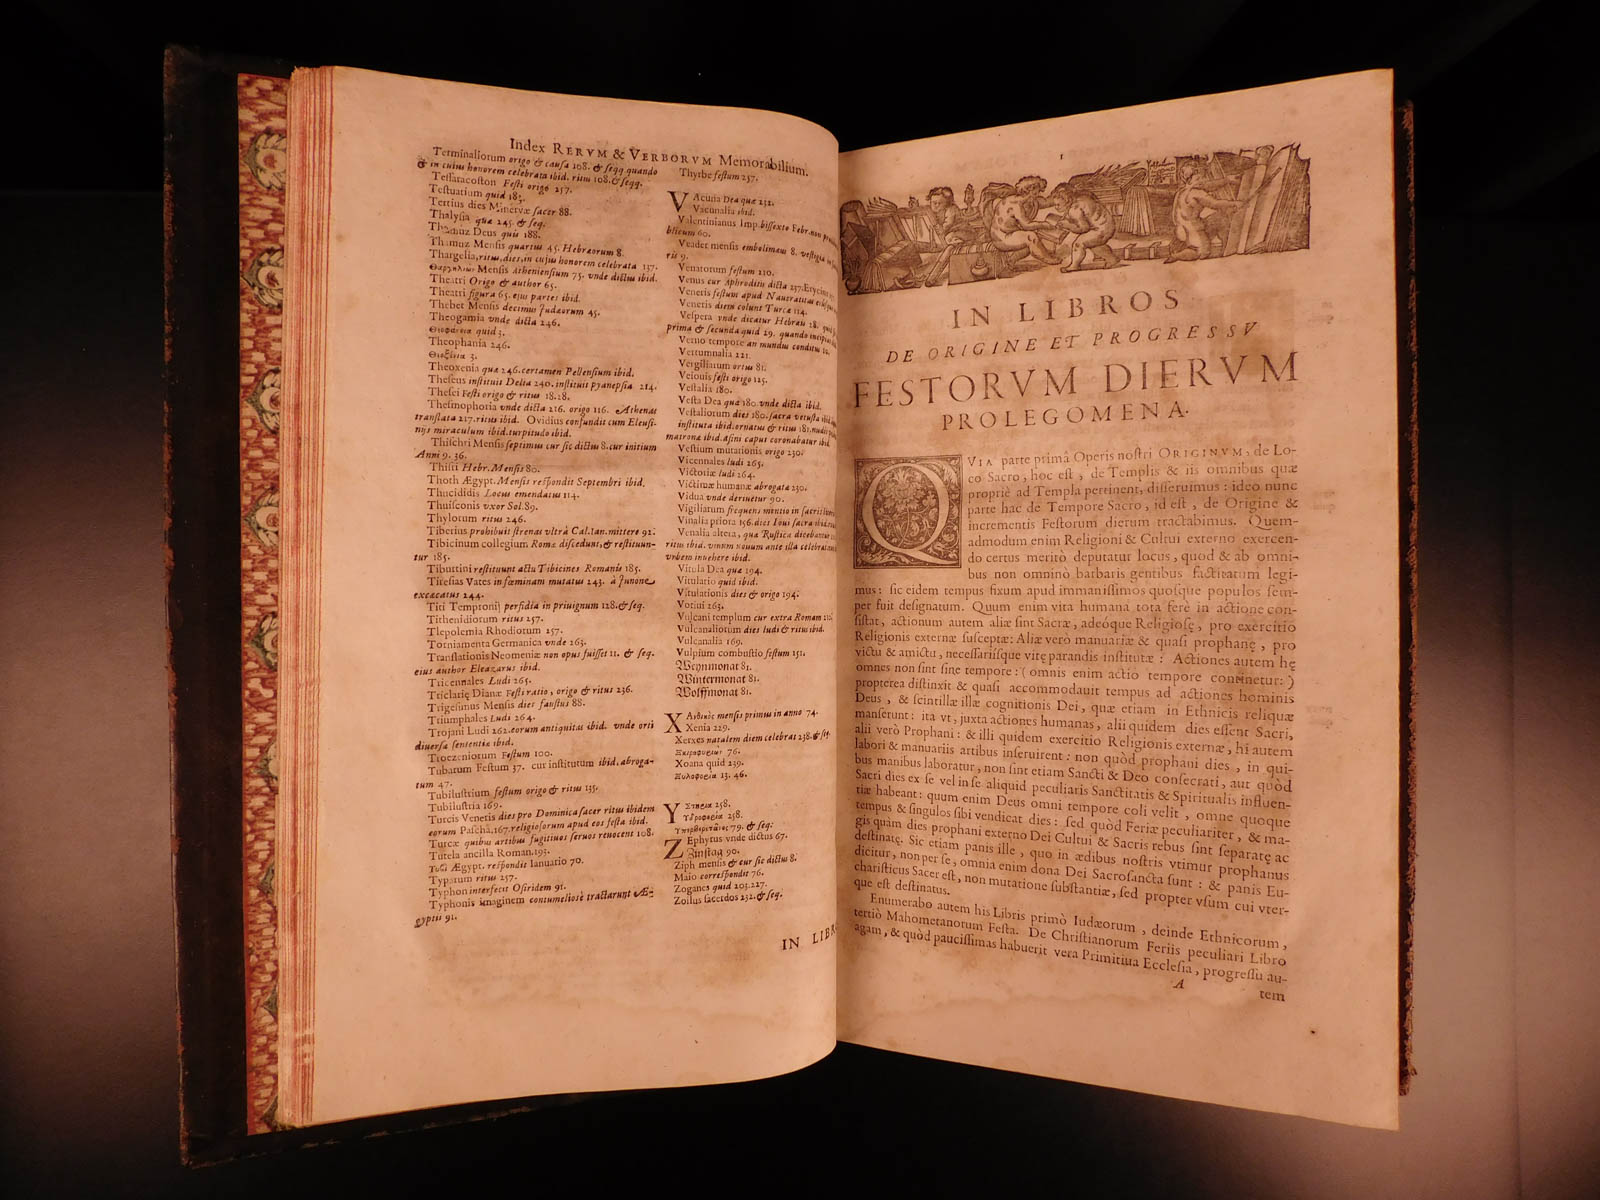 Index RERVM & VERBORVM Memorabilium.
Terminaliorum origo & causa 108. & seqq. quando
& in cuius honorem celebrata ibid. ritus 108. & seqq.
Tessaracoston Festi origo 257.
Testuatium quid 183.
Tertius dies Minervæ sacer 88.
Thalysia quæ 245. & seq.
Thamuz Deus quis 188.
Thamuz Mensis quartus 45. Hebræorum 8.
Thargelia, ritus, dies, in cuius honorem celebrata 137.
Mensis Atheniensium 75. vnde dictus ibid.
Theatri Origo & author 65.
Theatri figura 65. eius partes ibid.
Thebet Mensis decimus Judæorum 45.
Theogamia vnde dicta 246.
quid 3.
Theophania 246.
3.
Theoxenia quæ 246. certamen Pellensium ibid.
Theseus instituit Delia 240. instituit pyanepsia 214.
Thesei Festi origo & ritus 18.28.
Thesmophoria vnde dicta 216. origo 116. Athenas
translata 217. ritus ibid. Ovidius confundit cum Eleusi-
nijs miraculum ibid. turpitudo ibid.
Thischri Mensis septimus cur sic dictus 8. cur initium
Anni 9. 36.
Thisti Hebr. Mensis 80.
Thoth Ægypt. Mensis respondit Septembri ibid.
Thucididis Locus emendatus 114.
Thuisconis vxor Sol. 89.
Thylotum ritus 246.
Tiberius prohibuit strenas vltrà Cal. Ian. mittere 92.
Tibicinum collegium Romæ discedunt, & restituun-
tur 185.
Tiburtini restituunt actu Tibicines Romanis 185.
Tiresias Vates in fœminam mutatus 243. à Junone
excæcatus 244.
Titi Tempronij perfidia in priuignum 128. & seq.
Tithenidiorum ritus 257.
Tlepolemia Rhodiorum 257.
Torniamenta Germanica vnde 263.
Translationis Neomeniæ non opus fuisset 11. & seq.
eius author Eleazarus ibid.
Tricennales Ludi 265.
Triclariæ Dianæ Festi ratio, origo & ritus 236.
Trigesimus Mensis dies faustus 88.
Triumphales Ludi 264.
Trojani Ludi 262. eorum antiquitas ibid. vnde orti
diuersa sententia ibid.
Trœzeniorum Festum 100.
Tubarum Festum 37. cur institutum ibid. abroga-
tum 47.
Tubilustrium festum origo & ritus 135.
Tubilustria 169.
Turcis Venetis dies pro Dominica sacer ritus ibidem
eorum Pascha, 167. religiosorum apud eos festa ibid.
Turcæ quibus artibus fugitiuos seruos reuocent 108.
Tutela ancilla Roman. 193.
Ægypt. respondit Ianuario 70.
Typarum ritus 257.
Typhon interfecit Osiridem 91.
Typhonis imaginem contumeliosè tractarunt Æ-
gyptij 91.
Thyrbe festum 257.
VAcuna Dea quæ 232.
Vacunalia ibid.
Valentinianus Imp. bissexto Febr. non
blicum 60.
Veader mensis embolimæus 8. vestigia in
rij 9.
Venatorum festum 210.
Venus cur Aphroditis dicta 237.
Veneris festum apud Naucratitas
Veneris diem colunt Turcæ 114.
Vespera vnde dicatur Hebræu 28. quid
prima & secunda quid 29. quando
Verno tempore an mundus conditus
Vertumnalia 221.
Vergiliarum ortus 81.
Veiouis festi origo 125.
Vestalia 180.
Vesta Dea quæ 180. vnde dicta ibid.
Vestaliorum dies 180. sacra vetusta ibid
instituta ibid. ornatus & ritus 181.
matrona ibid. asini caput coronabatur ibid
Vestium mutationis origo 230.
Vicennales ludi 265.
Victoriæ ludi 264.
Victimæ humanæ abrogatæ 230.
Vidua vnde deriuetur 90.
Vigiliarum frequens mentio in sacris
Vinalia priora 156. dies Ioui sacra ibid.
Venalia altera, quæ Rustica dicebantur
ritus ibid. vinum nouum ante illa
vrbem inuehere ibid.
Vitula Dea quæ 194.
Vitulatio quid ibid.
Vitulationis dies & origo 194.
Votiui 263.
Vulcani templum cur extra Romam
Vulcanaliorum dies ludi & ritus ibid.
Vulcanalia 169.
Vulpium combustio festum 151.
Weynmonat 81.
Wintermonat 81.
Wolffmonat 81.
mensis primus in anno 74.
Xenia 229.
Xerxes natalem diem celebrat 238. & seq.
76.
Xoana quid 239.
13. 46.
258.
258.
79. & seq.
ZEphytus vnde dictus 67.
Zinstag 90.
Ziph mensis & cur sic dictus 8.
Maio correspondit 76.
Zoganes quid 203.227.
Zoilus sacerdos 232. & seq.
IN LIBR
1
IN LIBROS
DE ORIGINE ET PROGRESSV
FESTORVM DIERVM
PROLEGOMENA.
QVIA parte primâ Operis nostri ORIGINVM, de Lo-
co Sacro, hoc est, de Templis & iis omnibus quæ
propriè ad Templa pertinent, disseruimus: ideo nunc
parte hac de Tempore Sacro, id est, de Origine &
incrementis Festorum dierum tractabimus. Quem-
admodum enim Religioni & Cultui externo exercen-
do certus meritò deputatur locus, quod & ab omni-
bus non omninò barbaris gentibus factitatum legi-
mus: sic eidem tempus fixum apud immanissimos quosque populos sem-
per fuit designatum. Quum enim vita humana tota ferè in actione con-
sistat, actionum autem aliæ sint Sacræ, adeóque Religiosę, pro exercitio
Religionis externæ susceptæ: Aliæ verò manuariæ & quasi prophanę, pro
victu & amictu, necessariisque vitę parandis institutæ: Actiones autem hę
omnes non sint sine tempore: (omnis enim actio tempore continetur:)
propterea distinxit & quasi accommodauit tempus ad actiones hominis
Deus, & scintillæ illæ cognitionis Dei, quæ etiam in Ethnicis reliquæ
manserunt: ita vt, juxta actiones humanas, alii quidem dies essent Sacri,
alii verò Prophani: & illi quidem exercitio Religionis externæ, hi autem
labori & manuariis artibus inseruirent: non quòd prophani dies, in qui-
bus manibus laboratur, non sint etiam Sancti & Deo consecrati, aut quòd
Sacri dies ex se vel in se aliquid peculiaris Sanctitatis & Spiritualis influen-
tiæ habeant: quum enim Deus omni tempore coli velit, omne quoque
tempus & singulos sibi vendicat dies: sed quòd Feriæ peculiariter, & ma-
gis quàm dies prophani externo Dei Cultui & Sacris rebus sint separatę ac
destinatę. Sic etiam panis ille, quo in ædibus nostris vtimur prophanus
dicitur, non per se, omnia enim dona Dei Sacrosancta sunt: & panis Eu-
charisticus Sacer est, non mutatione substantiæ, sed propter vsum cui vter-
que est destinatus.
Enumerabo autem his Libris primò Iudæorum, deinde Ethnicorum,
tertiò Mahometanorum Festa. De Christianorum Feriis peculiari Libro
agam, & quòd paucissimas habuerit vera Primitiua Ecclesia, progressu au-
A
tem